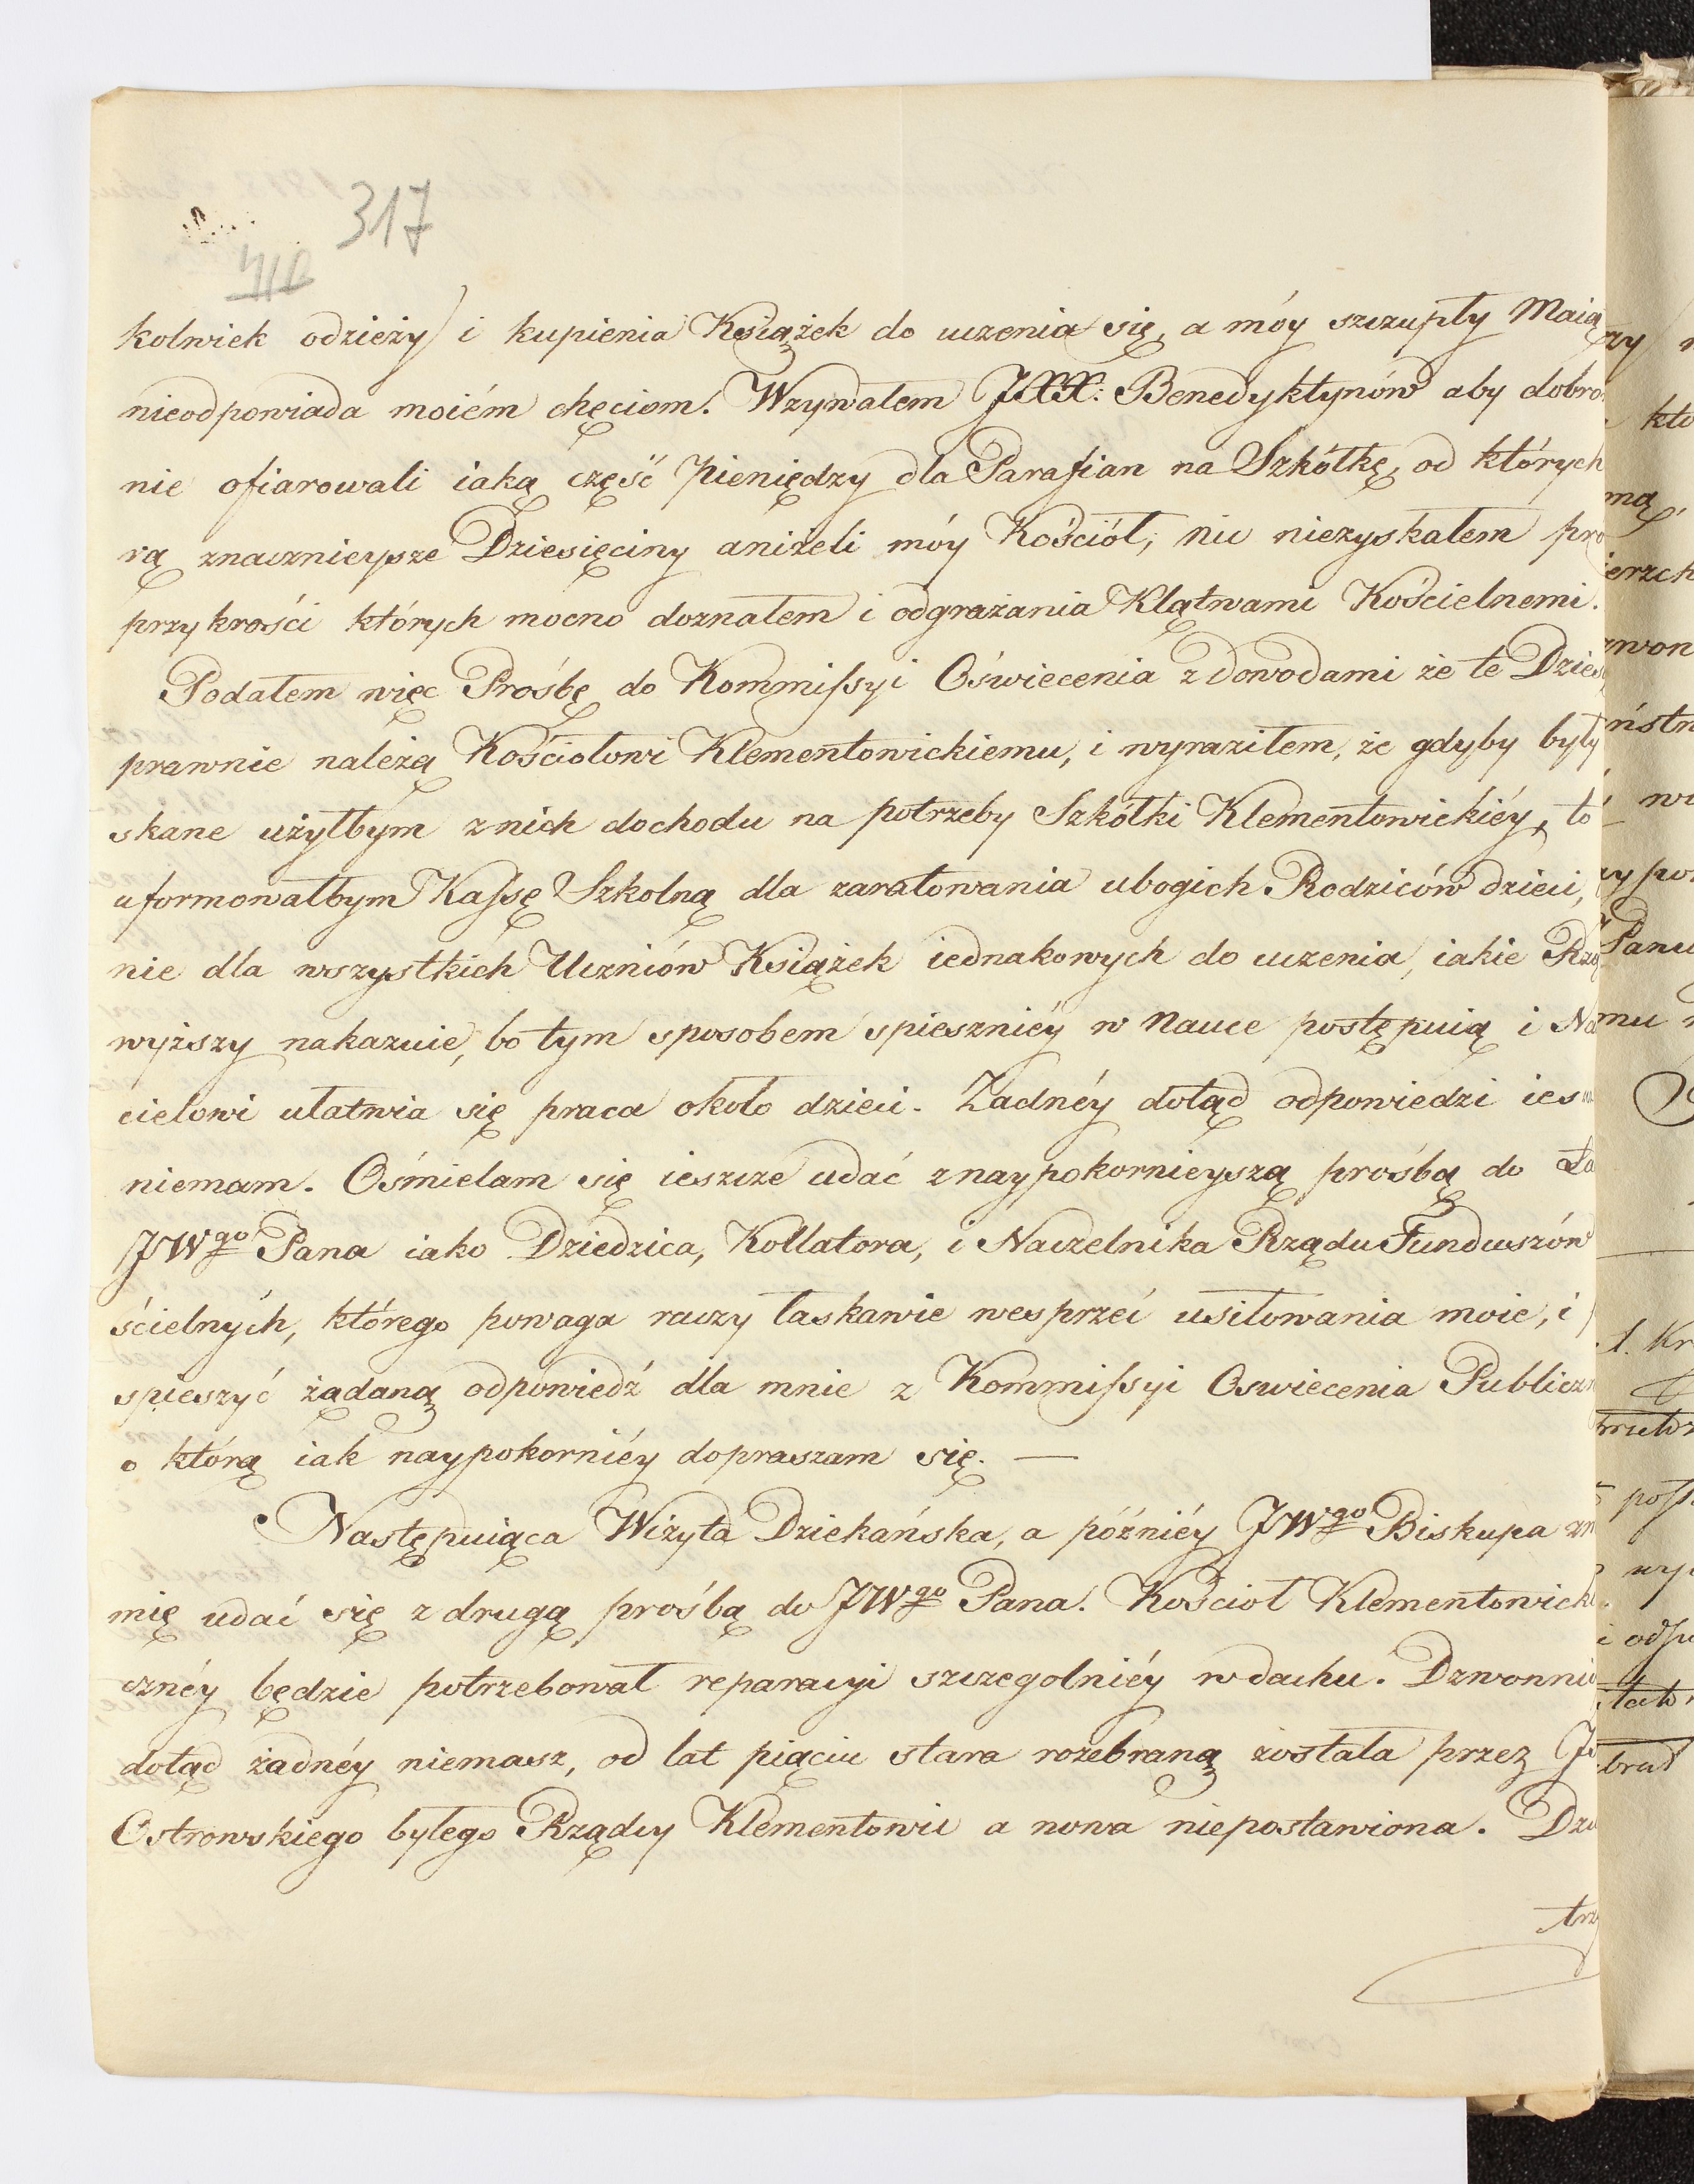 317
kolwiek odzieży i kupienia Książek do uczenia się, a móy szczupły Maią
nieodpowiada moiém chęciom. Wzywałem JXX: Benedyktynów aby dobro
nie ofiarowali iaką część pieniędzy dla Parafian na Szkółkę, od których
rą znacznieysze Dziesięciny aniżeli móy Kościół, nic niezyskałem pró
przykrości których mocno doznałem i odgrażania Klątwami Kościelnemi.
Podałem więc Prośbę do Kommissyi Oświecenia z dowodami że te Dzies
prawnie należą Kościołowi Klementowickiemu, i wyraziłem, że gdyby były
skane użyłbym z nich dochodu na potrzeby Szkółki Klementowickiéy, to
uformowałbym Kassę Szkolną dla zaratowania ubogich Rodziców dzieci,
nie dla wszystkich Uczniów Książek iednakowych do uczenia, iakie Rzą
wyższy nakazuie, bo tym sposobem spieszniéy w Nauce postępuią i Na
cielowi ułatwia się praca około dzieci. Żadnéy dotąd odpowiedzi ies
niemam. Ośmielam się ieszcze udać z naypokornieyszą prośbą do Ła
JWgo Pana iako Dziedzica, Kollatora, i Naczelnika Rządu Funduszów
ścielnych, którego powaga raczy łaskawie wesprzeć usiłowania moie, i
spieszyć żądaną odpowiedź dla mnie z Kommissyi Oswiecenia Publiczn
o którą iak naypokorniéy dopraszam się. —
Następuiąca Wizyta Dziekańska, a późniéy JWgo Biskupa zn
mię udać się z drugą prośbą do JWgo Pana. Kościoł Klementowick
cznéy będzie potrzebował reparacyi szczegolniéy w dachu. Dzwonni
dotąd żadnéy niemasz, od lat pięciu stara rozebraną została przez J
Ostrowskiego byłego Rządcy Klementowic a nowa niepostawiona. Dzw
trzy